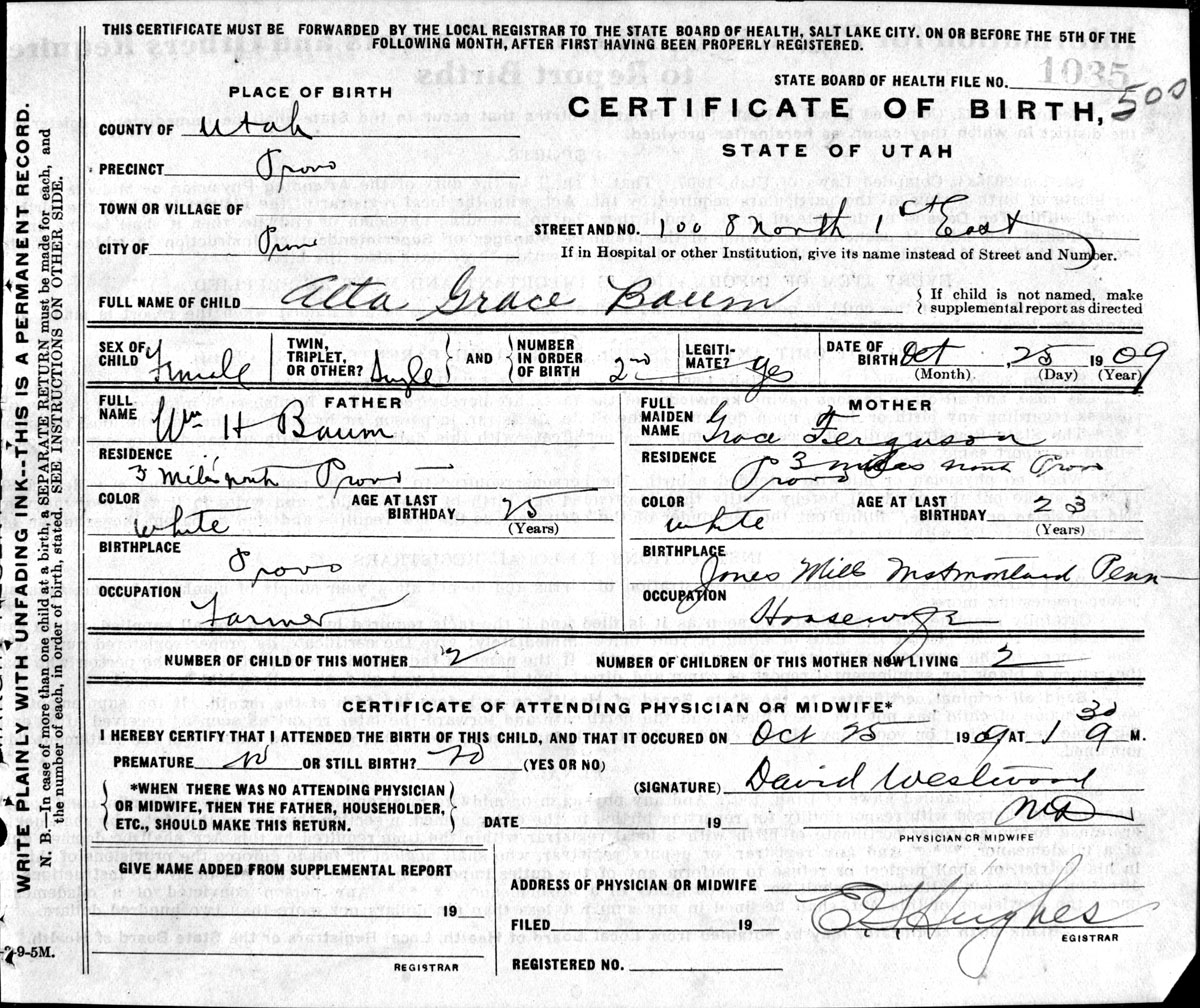 THIS CERTIFICATE MUST BE FORWARDED BY THE LOCAL REGISTRAR TO THE STATE BOARD OF HEALTH, SALT LAKE CITY. ON OR BEFORE THE 5TH OF THE
FOLLOWING MONTH, AFTER FIRST HAVING BEEN PROPERLY REGISTERED.
STATE BOARD OF HEALTH FILE NO. 1035
500
PLACE OF BIRTH
CERTIFICATE OF BIRTH,
STATE OF UTAH
COUNTY OF Utah
PRECINCT Provo
TOWN OR VILLAGE OF
CITY OF
STREET AND NO. 100 8 North 1st East
If in Hospital or other Institution, give its name instead of Street and Number.
FULL NAME OF CHILD Alta Grace Baum
If child is not named, make
supplemental report as directed
SEX OF CHILD Female
TWIN, TRIPLET, OR OTHER? Single
AND
NUMBER IN ORDER OF BIRTH 2nd
LEGITI-MATE? yes
DATE OF BIRTH Oct 25 1909
(Month) (Day) (Year)
FATHER
FULL NAME Wm H Baum
RESIDENCE
3 Miles north Provo
COLOR White
AGE AT LAST BIRTHDAY 25 (Years)
BIRTHPLACE
Provo
OCCUPATION
Farmer
MOTHER
FULL MAIDEN NAME Grace Ferguson
RESIDENCE
Provo 3 miles north Provo
COLOR White
AGE AT LAST BIRTHDAY 23 (Years)
BIRTHPLACE
Jones Mill Westmorland Penn
OCCUPATION
Housewife
NUMBER OF CHILD OF THIS MOTHER 2
NUMBER OF CHILDREN OF THIS MOTHER NOW LIVING 2
CERTIFICATE OF ATTENDING PHYSICIAN OR MIDWIFE*
I HEREBY CERTIFY THAT I ATTENDED THE BIRTH OF THIS CHILD, AND THAT IT OCCURED ON Oct 25 1909 AT 1 30 M.
PREMATURE No OR STILL BIRTH? No (YES OR NO)
*WHEN THERE WAS NO ATTENDING PHYSICIAN
OR MIDWIFE, THEN THE FATHER, HOUSEHOLDER,
ETC., SHOULD MAKE THIS RETURN.
(SIGNATURE) David Westwood
MD
PHYSICIAN OR MIDWIFE
DATE
GIVE NAME ADDED FROM SUPPLEMENTAL REPORT
19
REGISTRAR
ADDRESS OF PHYSICIAN OR MIDWIFE
FILED 19
Hughes
EGISTRAR
REGISTERED NO.
-9-5M.
WRITE PLAINLY WITH UNFADING INK--THIS IS A PERMANENT RECORD.
N. B.—In case of more than one child at a birth, a SEPARATE RETURN must be made for each, and
the number of each, in order of birth, stated. SEE INSTRUCTIONS ON OTHER SIDE.